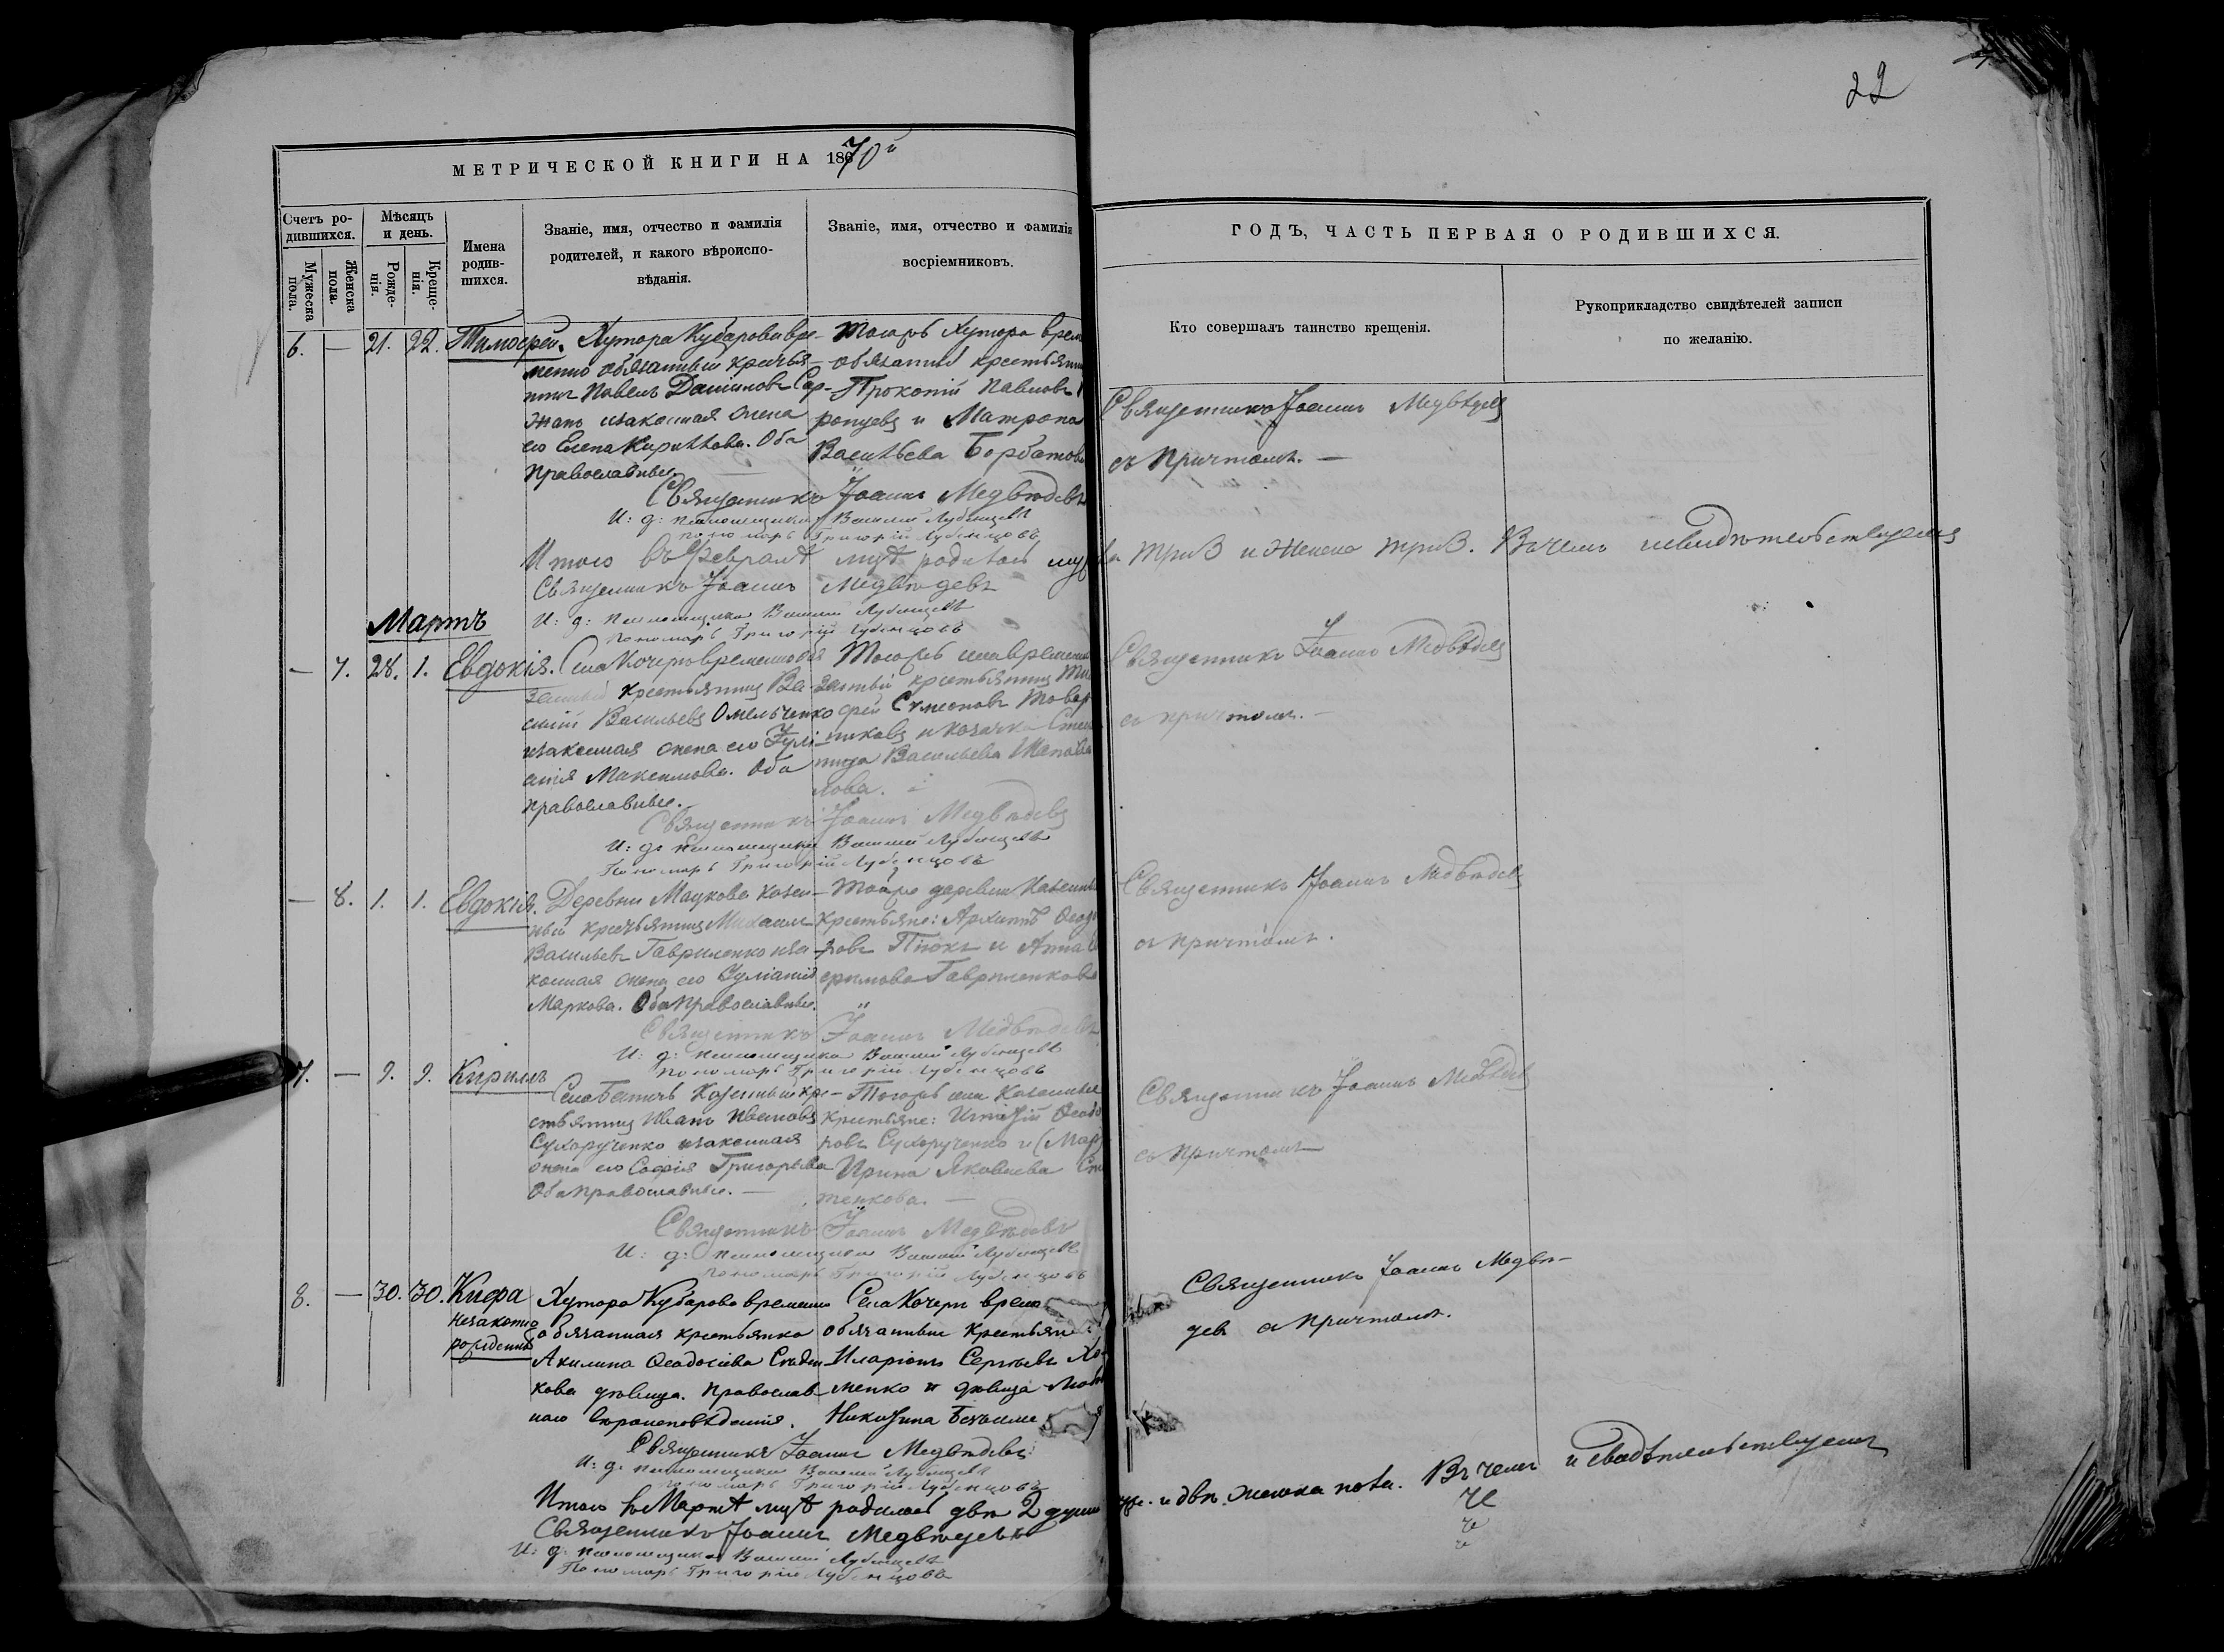 22
МЕТРИЧЕСКОЙ КНИГИ НА 1870й
ГОДЪ, ЧАСТЬ ПЕРВАЯ О РОДИВШИХСЯ.
Счетъ ро-
дившихся.
Мужеска
пола.
Женска
пола.
Мѣсяцъ
и день.
Рожде-
нія.
Креще-
нія.
Имена
родив-
шихся.
Званіе, имя, отчество и фамилія
родителей, и какого вѣроиспо-
вѣданія.
Званіе, имя, отчество и фамилія
воспріемниковъ.
Кто совершалъ таинство крещенія.
Рукоприкладство свидѣтелей записи
по желанію.
6. — 21. 22. Тимофей.
Хутора Кубарова вре-
менно обязанный крестья-
нинъ Павелъ Даниловъ
и законная жена
его Елена Кириллова. Оба
Православные.
Тогожъ Хутора врем
обязанный крестьянин
Прокопій Павловъ
и Матрона
Васильева Борбатов
Священникъ Іоаннъ Медвѣдев
съ Причтомъ. —
Священникъ Іоаннъ Медвѣдевъ
И: д: псаломщика Василій Лубенцевъ
Пономарь Григорій Лубенцовъ
Итого въ Февралѣ мцѣ родилось муж три 3 и Женска три 3. Въ чемъ и свидѣтельствуемъ
Священникъ Іоаннъ Медвѣдевъ
И: д: псаломщика Василій Лубенцевъ
Пономарь Григорій Лубенцовъ
Мартъ
— 7. 28. 1. Евдокія.
Села Кочергъ временно обя
занный крестьянинъ Ва-
силій Васильевъ Омельченко
и законная жена его Іулі-
анія Максимова. Оба
православные.
Тогожъ села временно
занный крестьянинъ Тим
офей Симеоновъ Товар
никовъ и козачка Степ
нида Васильева Шапова
лова.
Священникъ Іоаннъ Медвѣдев
съ причтомъ. —
Священникъ Іоаннъ Медвѣдевъ
И: д: псаломщика Василій Лубенцевъ
Пономарь Григорій Лубенцовъ
— 8. 1. 1. Евдокія.
Деревни Мацкова казен-
ный крестьянинъ Михаилъ
Васильевъ Гавриленко и за-
конная жена его Іуліанія
Маркова. Оба православные.
Тойже деревни казенны
Крестьяне: Архипъ Ѳеодо
ровъ Пюкъ и Анна
Гавриленкова
Священникъ Іоаннъ Медвѣдев
съ причтомъ.
Священникъ Іоаннъ Медвѣдевъ
И: д: псаломщика Василій Лубенцевъ
Пономарь Григорій Лубенцовъ
7. — 9. 9. Кириллъ
Села казенный кре-
стьянинъ Иванъ Ивановъ
Сухорученко и законная
жена его Софія Григорьева
Оба православные. —
Тогожъ села казенные
Крестьяне: Игнатій Ѳеодо
ровъ Сухорученко и
Ирина Яковлева
тенкова. —
Священникъ Іоаннъ Медвѣдев
съ Причтомъ
Священникъ Іоаннъ Медвѣдевъ
И: д: псаломщика Василій Лубенцевъ
Пономарь Григорій Лубенцовъ
8. — 30. 30. Кифа
незаконно
рожденный
Хутора Кубарова временно
обязанная крестьянка
Акилина Ѳеодосіева
кова дѣвица. Православ-
наго вѣроисповѣданія.
Села Кочергъ врем
обязанные крестьян
Иларіонъ Сергѣевъ
менко и дѣвица
Никитина
Священникъ Іоаннъ Медвѣ-
девъ съ Причтомъ.
Священникъ Іоаннъ Медвѣдевъ
И: д: псаломщика Василій Лубенцевъ
Пономарь Григорій Лубенцовъ
Итого въ Мартѣ мцѣ родилось два 2 и двѣ женска пола. Въ чемъ и свидѣтельствуемъ
Священникъ Іоаннъ Медвѣдевъ
И: д: псаломщика Василій Лубенцевъ
Пономарь Григорій Лубенцовъ